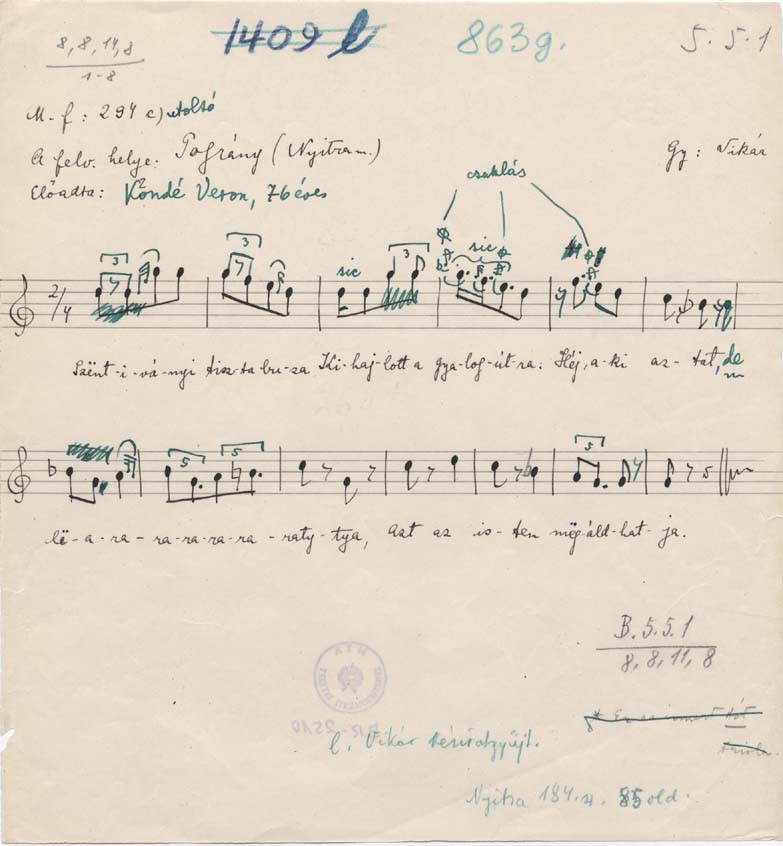 8, 8, 14, 8
1-8
1409 l
863g.
5. 5. 1
M-f: 294 c) utolsó
A felv. helye: Pográny (Nyitram.)
Gy: Vikár
Előadta: Kondé Veron, 76 éves
csuklás
3 3 sic 3 sic
2/4
Szënt-i-vá-nyi tisz-ta bu-za Ki-haj-lott a gya-log-út-ra: Héj, a-ki az-tat, de
5 5 5
lë-a-ra-ra-ra-ra-ra-raty-tya, azt az is-ten mëg-áld-hat-ja.
B. 5. 5. 1
8, 8, 11, 8
l. Vikár kéziratgyűjt.
Nyitra 184. sz. 85 old.